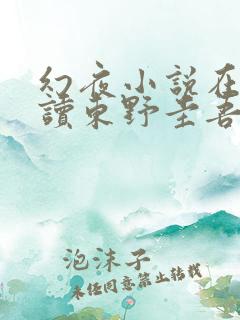 幻夜小说在
讀东野圭吾
泡沫子
未经同意禁止转载